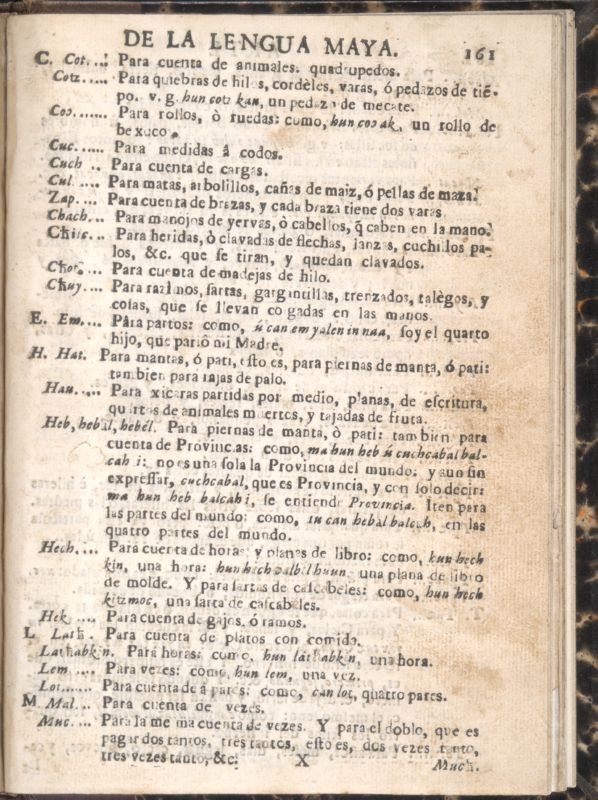 DE LA LENGUA MAYA. 161
C. Cot...: Para cuenta de animales. quadrupedos.
Cotz..... Para quiebras de hilos, cordèles, varas, ò pedazos de tiē-
po. v. g. hun cotz kan, un pedazo de mecate.
Coɔ...... Para rollos, ò ruedas: como, hun coɔ ak, un rollo de
bexuco.
Cuc...... Para medidas â codos.
Cuch .. Para cuenta de cargas.
Cul .... Para matas, arbolillos, cañas de maiz, ó pellas de maza.
Zap.... Para cuenta de brazas, y cada braza tiene dos varas.
Chach... Para manojos de yervas, ò cabellos, q̃ caben en la mano.
Para heridas, ò clavadas de flechas, lanzas, cuchillos pa-
los, &c. que se tiran, y quedan clavados.
Para cuenta de madejas de hilo.
Cħuy.... Para razimos, sartas, gargantillas, trenzados, talègos, y
cosas, que se llevan colgadas en las manos.
E. Em.... Pâra partos: como, ú can em yalen in naa, soy el quarto
hijo, que pariò mi Madre.
H. Hat. Para mantas, ó pati, esto es, para piernas de manta, ó pati:
tambien para rajas de palo.
Hau..... Para xicaras partidas por medio, planas, de escritura,
quartos de animales muertos, y tajadas de fruta.
Heb, hebal, hebél. Para piernas de manta, ò pati: tambien para
cuenta de Provincias: como, ma hun heb ú cuchcabal bal-
cah i: no es una sola la Provincia del mundo: y aun sin
expressar, cuchcabal, que es Provincia, y con solo decir:
ma hun heb balcah i, se entiende Provincia. Iten para
las partes del mundo: como, tu can hebàl balcah, en las
quatro partes del mundo.
Hech.... Para cuenta de horas, y planas de libro: como, hun hech
kin, una hora: hun hech ɔalbil huun una plana de libro
de molde. Y para sartas de cascabeles: como, hun hech
kitzmoc, una sarta de cascabeles.
Hek .... Para cuenta de gajos, ò ramos.
L Latħ. Para cuenta de platos con comida.
Latħabkin. Para horas: como, hun làtħabkin, una hora.
Lem .... Para vezes: como, hun lem, una vez.
Lot...... Para cuenta de á pares: como, can lot, quatro pares.
M. Mal... Para cuenta de vezes.
Muc.... Para la mesma cuenta de vezes. Y para el doblo, que es
pagar dos tantos, tres tantos, esto es, dos vezes tanto,
tres vezes tanto, &c. X Mucħ.